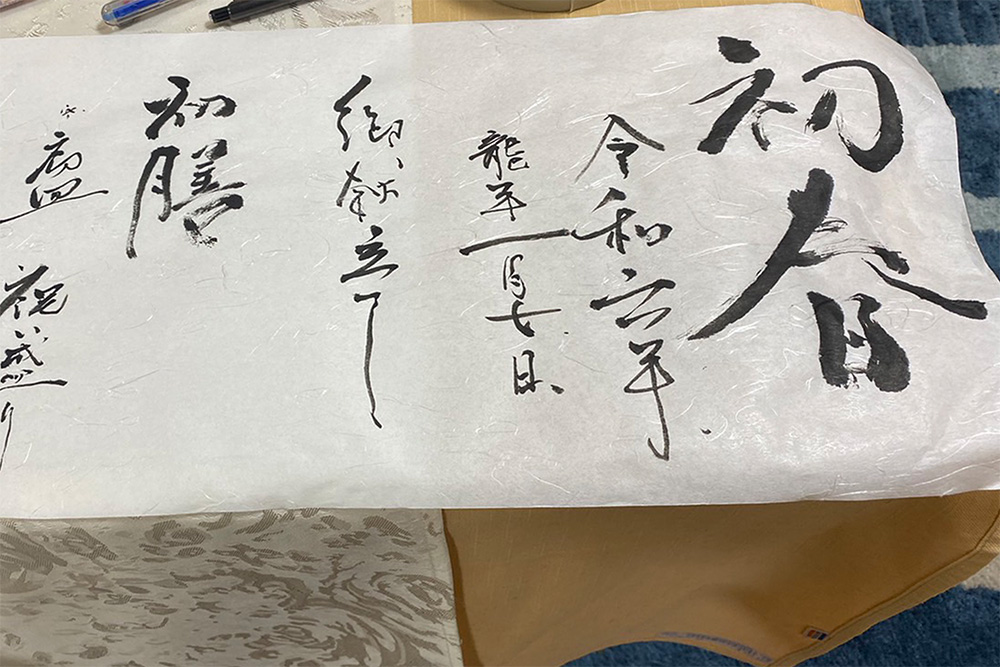 初春
令和六年
龍年一月七日
御献立て
初膳
前盛
祝い盛り